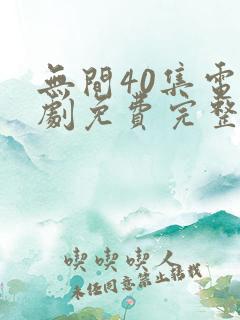 無間40集電
劇免費完整
喫喫喫人
未经同意禁止转载